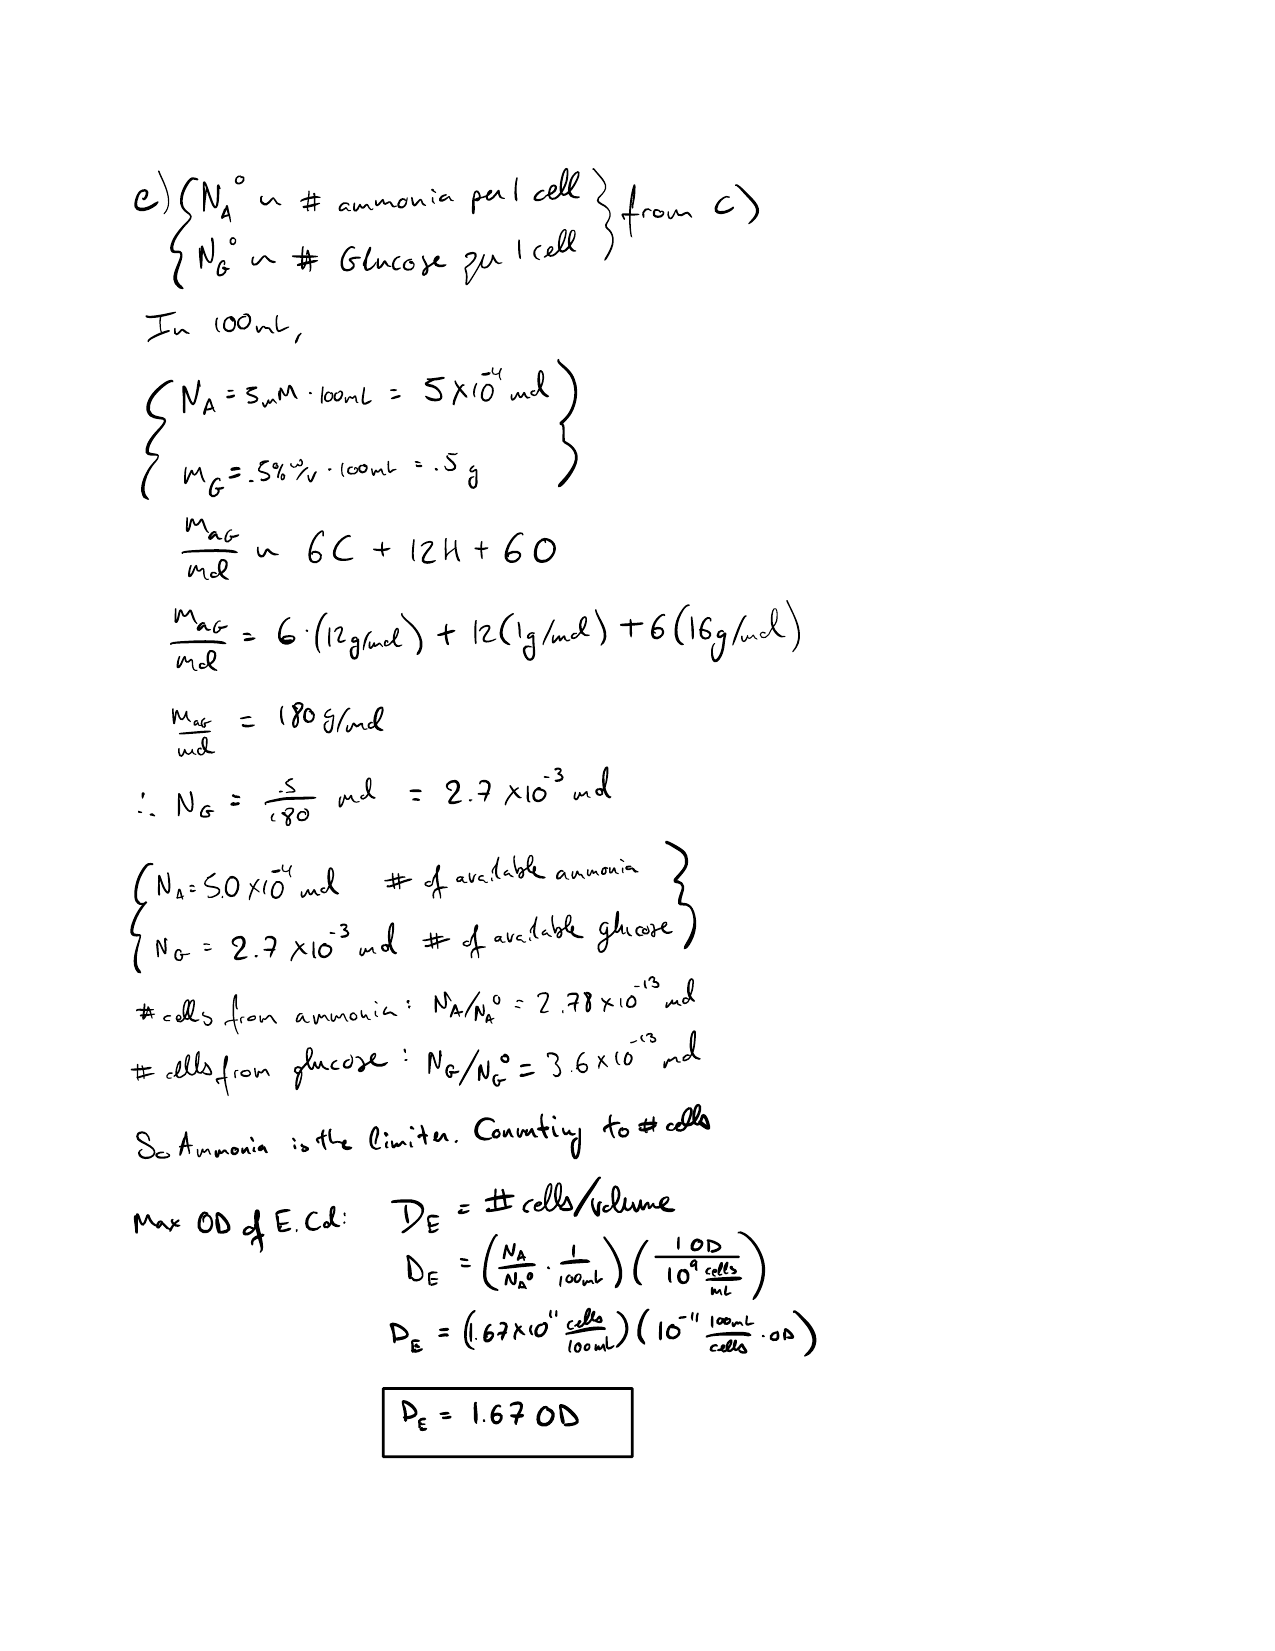 e) { N_A° ~ # ammonia per 1 cell } from c)
{ N_G° ~ # Glucose per 1 cell
In 100mL,
{ N_A = 5mM · 100mL = 5 × 10^-4 mol }
m_G = .5% w/v · 100mL = .5 g
m_aG/mol ~ 6C + 12H + 6O
m_aG/mol = 6·(12g/mol) + 12(1g/mol) + 6(16g/mol)
m_aG/mol = 180 g/mol
∴ N_G = .5/180 mol = 2.7 × 10^-3 mol
{ N_A = 5.0 × 10^-4 mol # of available ammonia }
N_G = 2.7 × 10^-3 mol # of available glucose
# cells from ammonia: N_A/N_A° = 2.78 × 10^-13 mol
# cells from glucose: N_G/N_G° = 3.6 × 10^-13 mol
So Ammonia is the limiter. Converting to # cells
Max OD of E. Col: D_E = # cells/volume
D_E = (N_A/N_A° · 1/100mL) (1 OD / 10^9 cells/mL)
D_E = (1.67 × 10^11 cells/100mL) (10^-11 100mL/cells · OD)
D_E = 1.67 OD